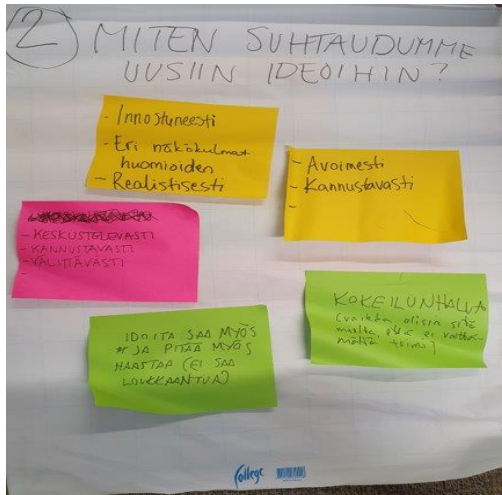 2 MITEN SUHTAUDUMME
UUSIIN IDEOIHIN?
- Innostuneesti
- Eri näkökulmat
huomioiden
- Realistisesti
- Avoimesti
- Kannustavasti
-
- KESKUSTELEVASTI
- KANNUSTAVASTI
- VÄLITTÄVÄSTI
-
KOKEILUNHALU
(vaikka olisin sitä
mieltä että ei
toimi)
IDOITA SAA MYÖS
* JA PITÄÄ MYÖS
HAASTAA (EI SAA
LOUKKAANTUA)
College